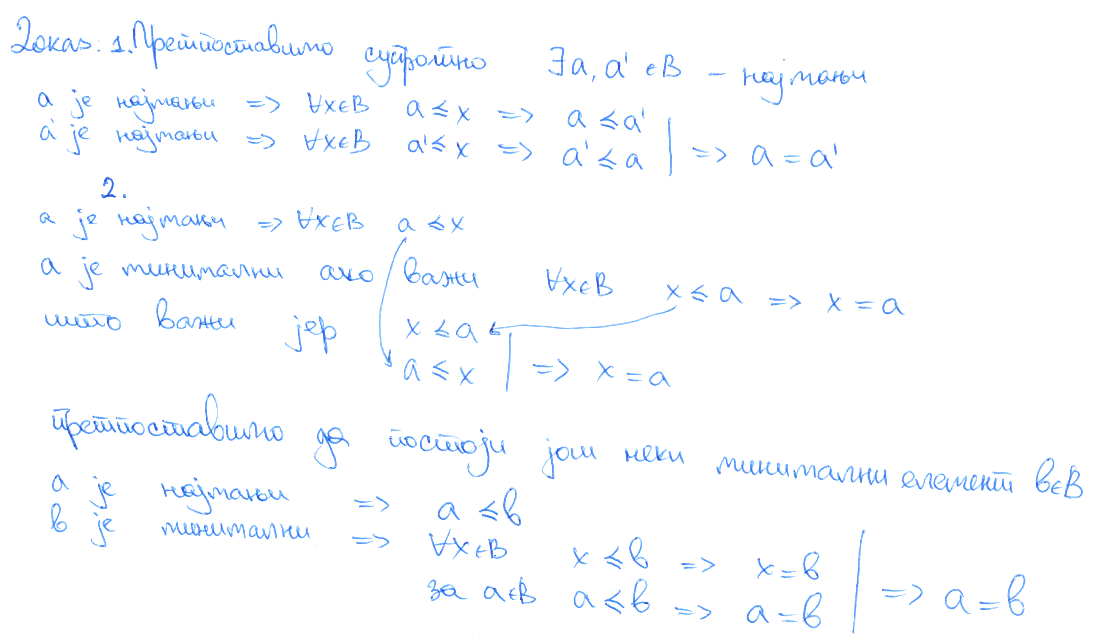 Доказ: 1. Претпоставимо супротно ∃a, a' ∈ B – најмањи
a је најмањи => ∀x∈B a ≤ x => a ≤ a'
a' је најмањи => ∀x∈B a' ≤ x => a' ≤ a | => a = a'
2.
a је најмањи => ∀x∈B a ≤ x
a је минимални ако важи ∀x∈B x ≤ a => x = a
што важи јер x ≤ a
a ≤ x | => x = a
претпоставимо да постоји још неки минимални елемент в∈B
a је најмањи => a ≤ в
в је минимални => ∀x∈B x ≤ в => x = в
за a∈B a ≤ в => a = в | => a = в